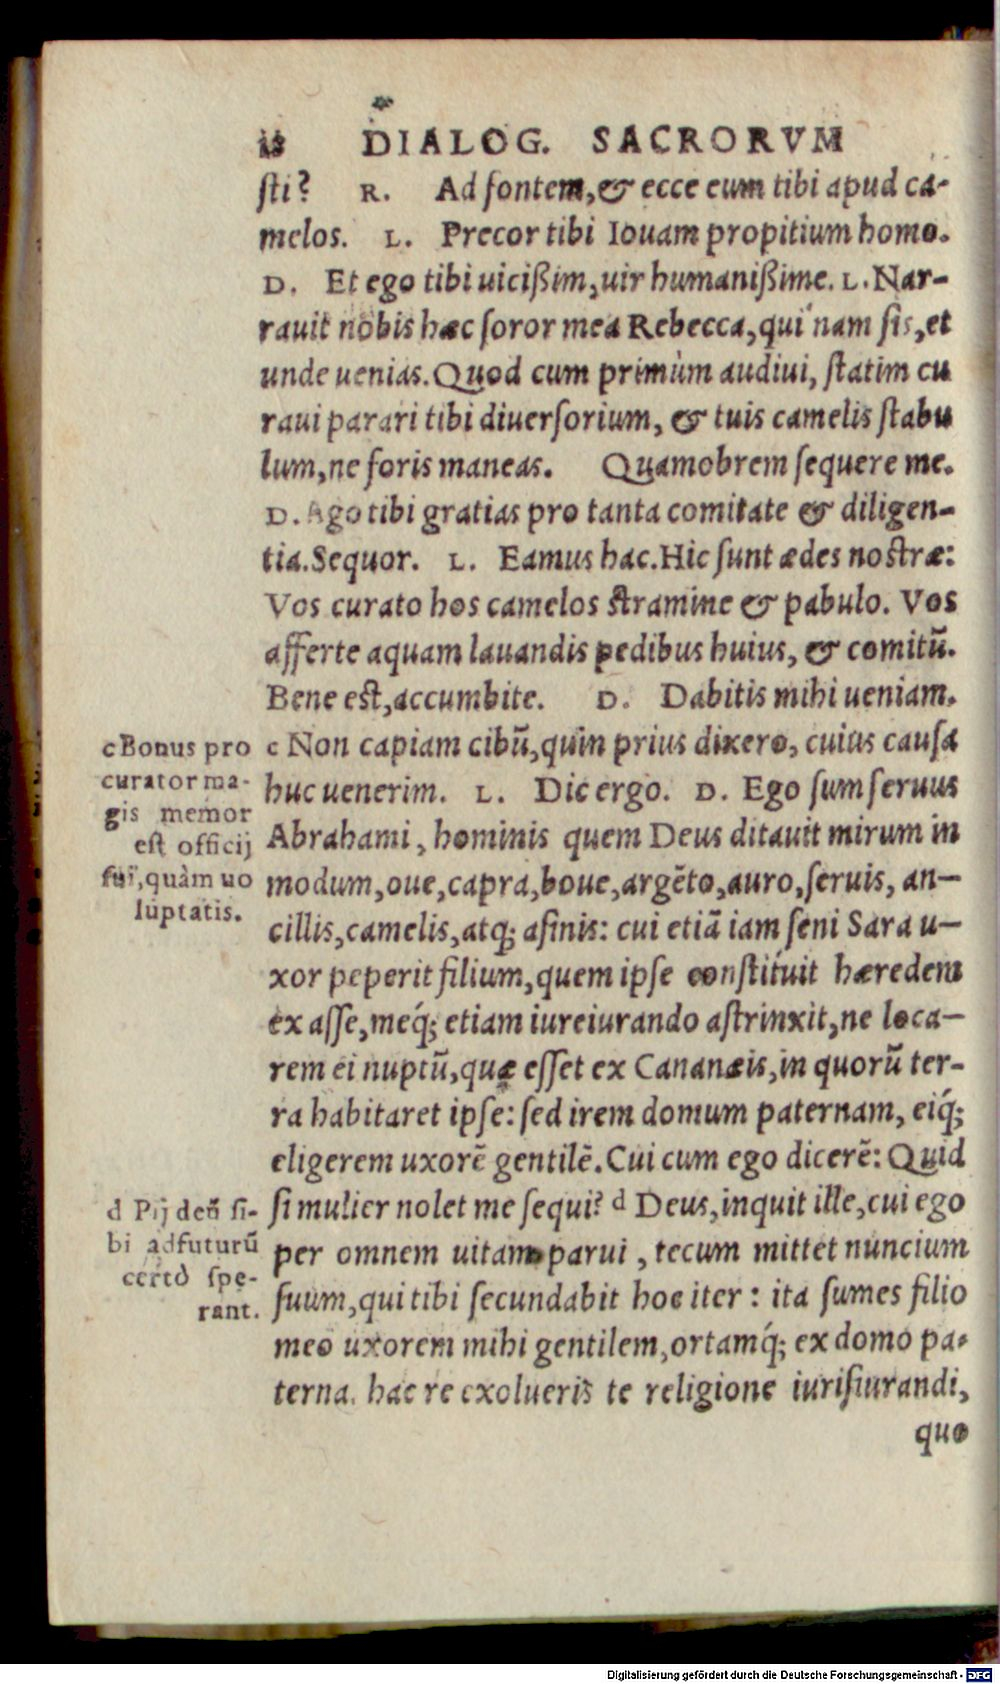 18 DIALOG. SACRORVM
sti? R. Ad fontem, & ecce eum tibi apud ca-
melos. L. Precor tibi Iouam propitium homo.
D. Et ego tibi uicißim, uir humanißime. L. Nar-
rauit nobis hæc soror mea Rebecca, qui nam sis, et
unde uenias. Quod cum primùm audiui, statim cu
raui parari tibi diuersorium, & tuis camelis stabu
lum, ne foris maneas. Quamobrem sequere me.
D. Ago tibi gratias pro tanta comitate & diligen-
tia. Sequor. L. Eamus hac. Hic sunt ædes nostræ:
Vos curato hos camelos stramine & pabulo. Vos
afferte aquam lauandis pedibus huius, & comitū.
Bene est, accumbite. D. Dabitis mihi ueniam.
c Non capiam cibū, quin prius dixero, cuius causa
huc uenerim. L. Dic ergo. D. Ego sum seruus
Abrahami, hominis quem Deus ditauit mirum in
modum, oue, capra, boue, argēto, auro, seruis, an-
cillis, camelis, atq; asinis: cui etiā iam seni Sara u-
xor peperit filium, quem ipse constituit hæredem
ex asse, meq́; etiam iureiurando astrinxit, ne loca-
rem ei nuptū, quæ esset ex Cananæis, in quorū ter-
ra habitaret ipse: sed irem domum paternam, eiq́;
eligerem uxorē gentilē. Cui cum ego dicerē: Quid
si mulier nolet me sequi? d Deus, inquit ille, cui ego
per omnem uitam parui, tecum mittet nuncium
suum, qui tibi secundabit hoc iter: ita sumes filio
meo uxorem mihi gentilem, ortamq́; ex domo pa-
terna. hac re exolueris te religione iurisiurandi,
quo
c Bonus pro
curator ma-
gis memor
est officij
sui, quàm uo
luptatis.
d Pij deū si-
bi adfuturū
certò spe-
rant.
Digitalisierung gefördert durch die Deutsche Forschungsgemeinschaft - DFG